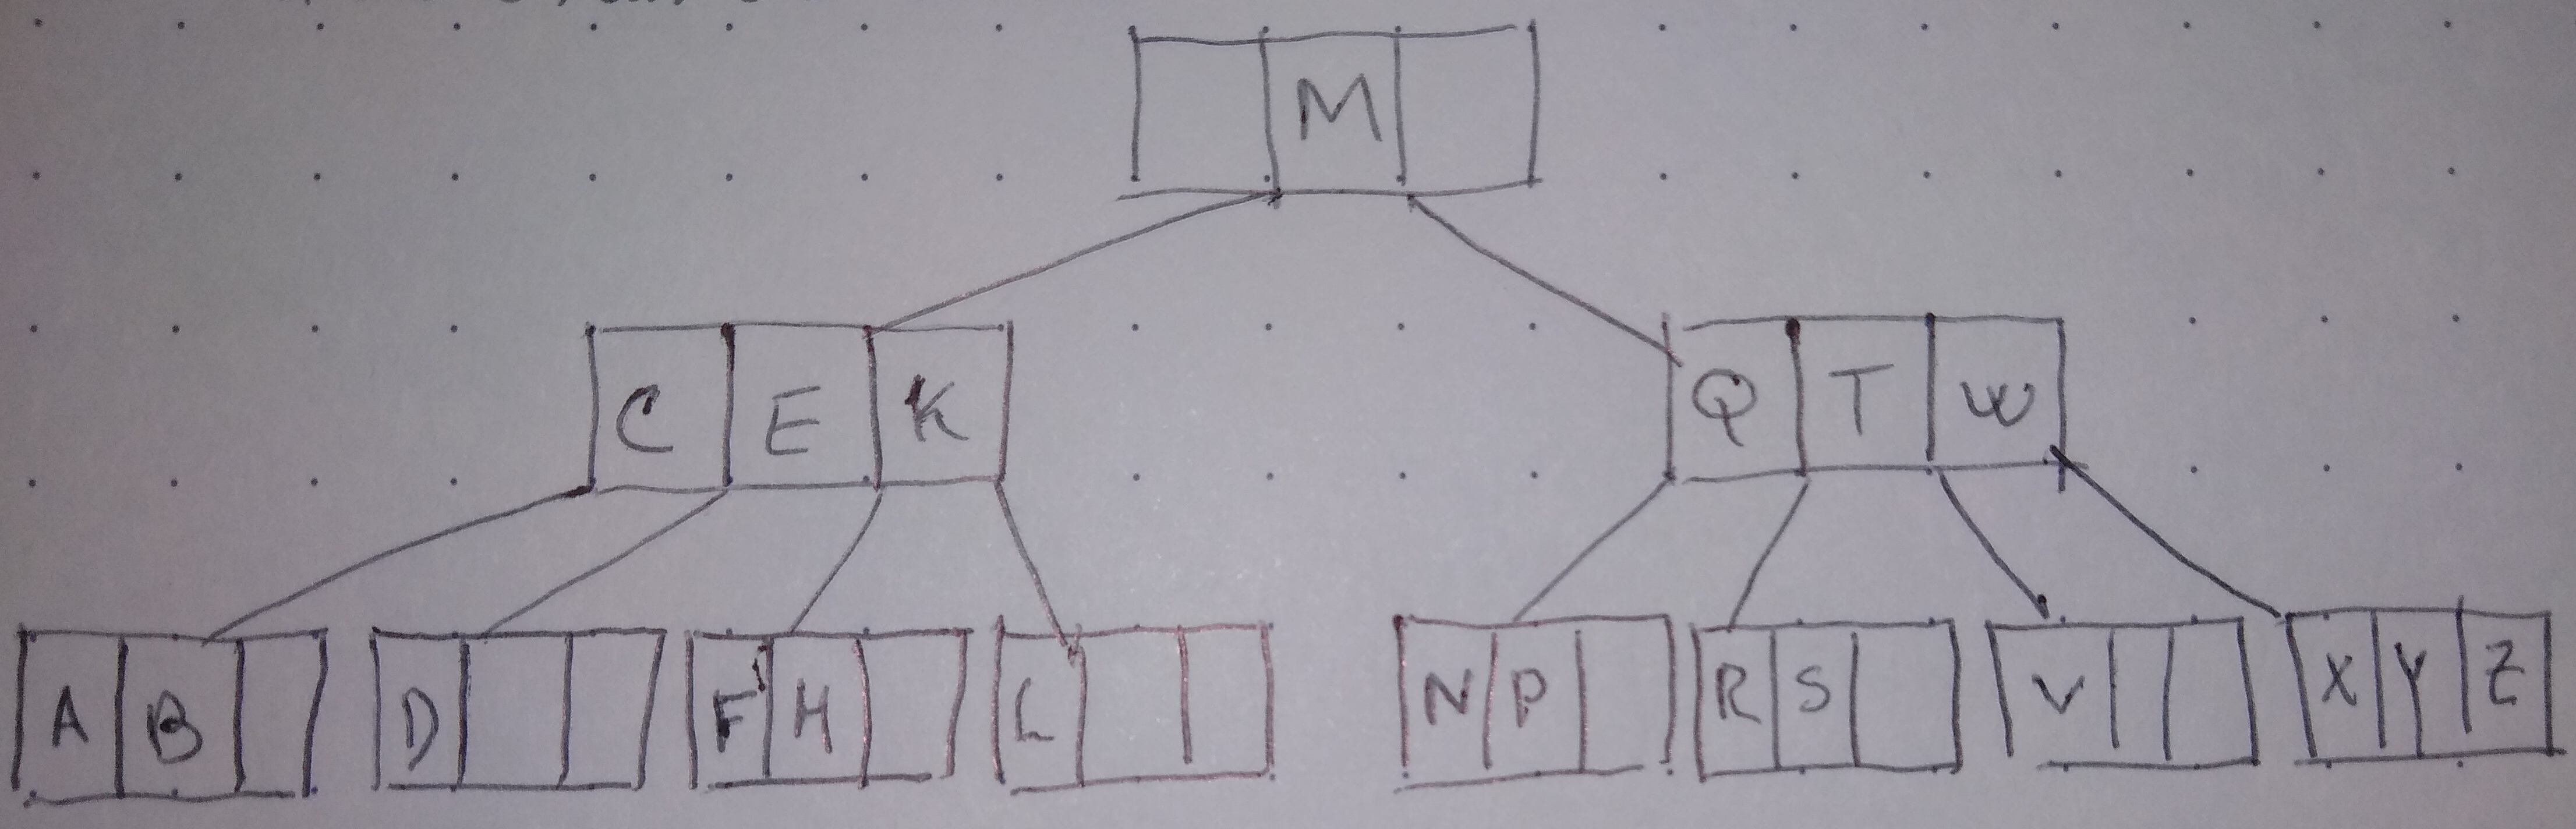 M
C E K Q T W
A B D F H L N P R S V X Y Z